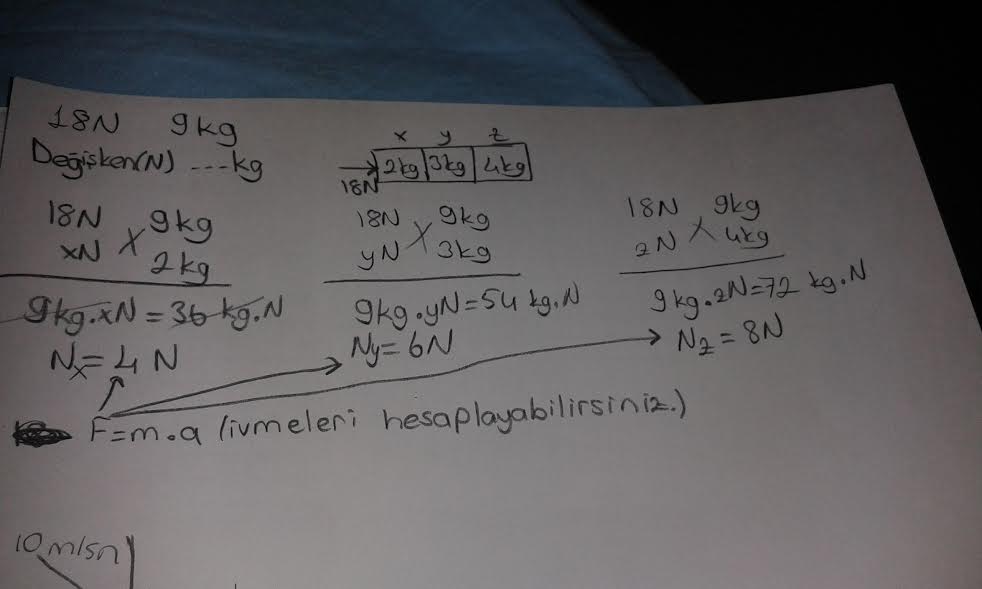 18N 9kg
Değişken(N) ...kg
x y z
2kg 3kg 4kg
18N
18N 9kg
xN X 2kg
9kg.xN = 36 kg.N
Nx = 4 N
18N 9kg
yN X 3kg
9kg.yN = 54 kg.N
Ny = 6N
18N 9kg
zN X 4kg
9kg.zN = 72 kg.N
Nz = 8N
F=m.a (ivmeleri hesaplayabilirsiniz.)
10 m/sn